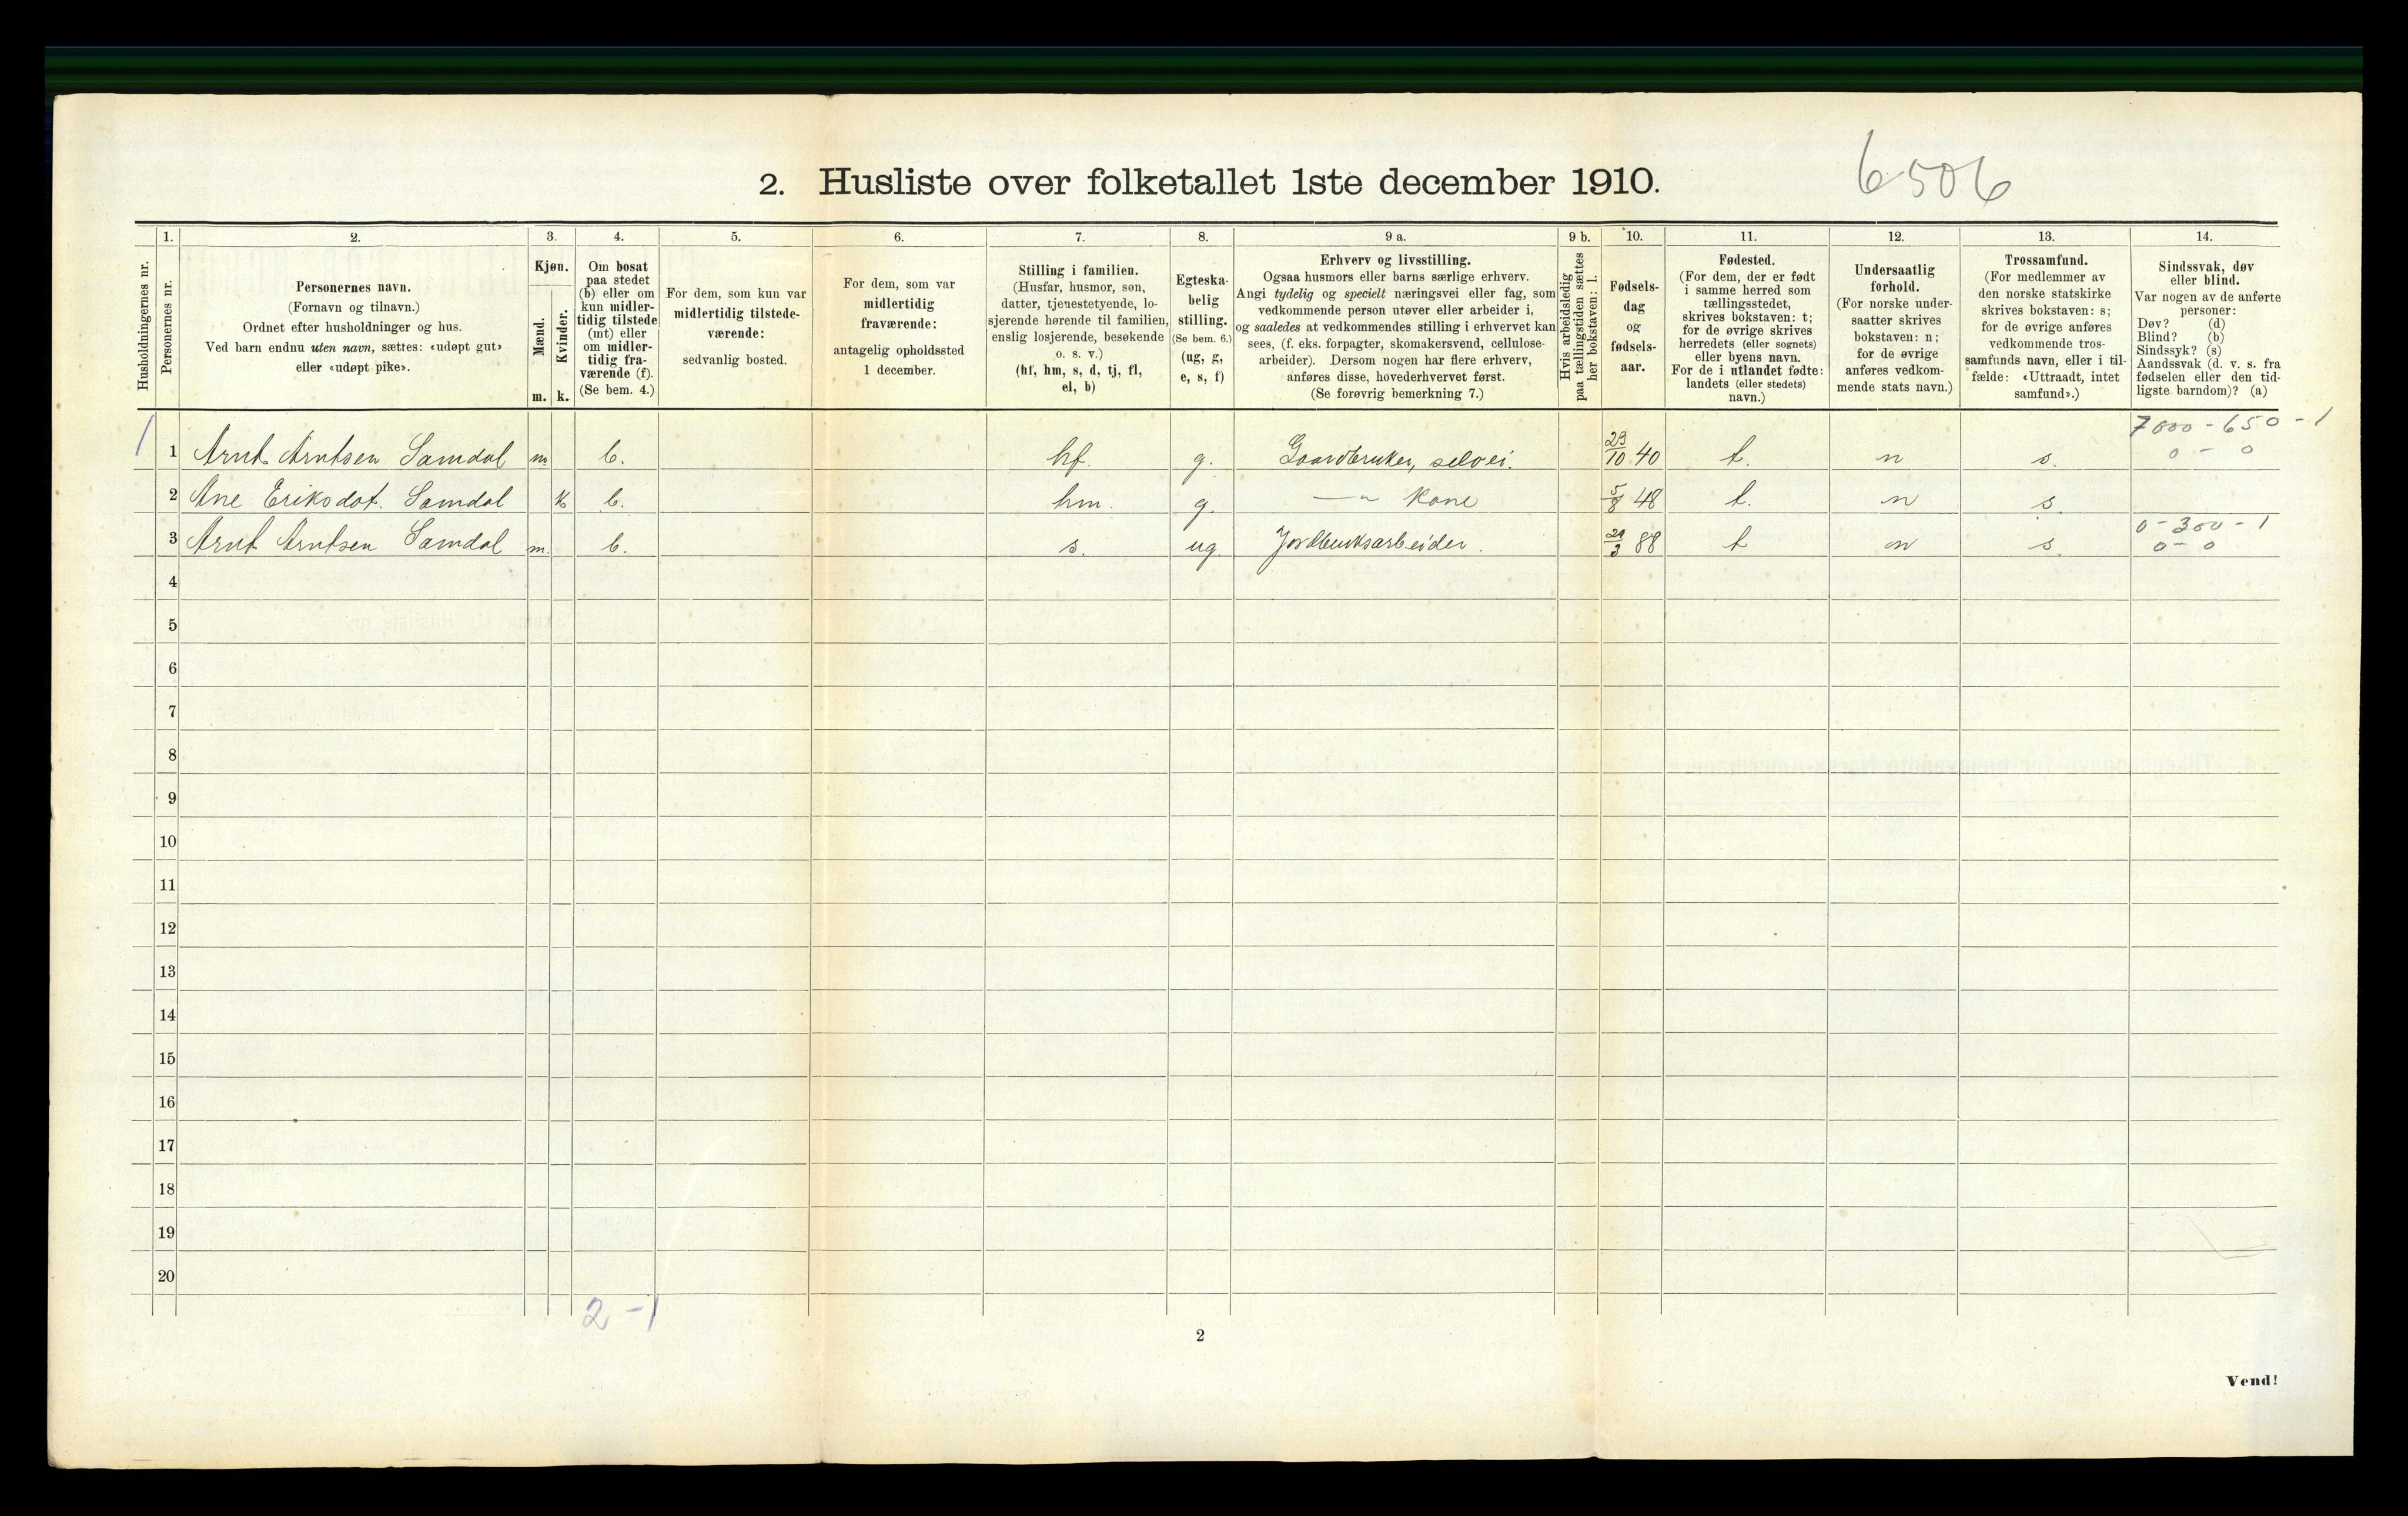 2. Husliste over folketallet 1ste december 1910.
6506
Husholdningernes nr.
1.
Personernes nr.
2.
Personernes navn.
(Fornavn og tilnavn.)
Ordnet efter husholdninger og hus.
Ved barn endnu uten navn, sættes: «udøpt gut»
eller «udøpt pike».
3.
Kjøn.
Mænd.
Kvinder.
m. k.
4.
Om bosat
paa stedet
(b) eller om
kun midler-
tidig tilstede
(mt) eller
om midler-
tidig fra-
værende (f).
(Se bem. 4.)
5.
For dem, som kun var
midlertidig tilstede-
værende:
sedvanlig bosted.
6.
For dem, som var
midlertidig
fraværende:
antagelig opholdssted
1 december.
7.
Stilling i familien.
(Husfar, husmor, søn,
datter, tjenestetyende, lo-
sjerende hørende til familien,
enslig losjerende, besøkende
o. s. v.)
(hf, hm, s, d, tj, fl,
el, b)
8.
Egteska-
belig
stilling.
(Se bem. 6.)
(ug, g,
e, s, f)
9 a.
Erhverv og livsstilling.
Ogsaa husmors eller barns særlige erhverv.
Angi tydelig og specielt næringsvei eller fag, som
vedkommende person utøver eller arbeider i,
og saaledes at vedkommendes stilling i erhvervet kan
sees, (f. eks. forpagter, skomakersvend, cellulose-
arbeider). Dersom nogen har flere erhverv,
anføres disse, hovederhvervet først.
(Se forøvrig bemerkning 7.)
9 b.
Hvis arbeidsledig
paa tællingstiden sættes
her bokstaven: l.
10.
Fødsels-
dag
og
fødsels-
aar.
11.
Fødested.
(For dem, der er født
i samme herred som
tællingsstedet,
skrives bokstaven: t;
for de øvrige skrives
herredets (eller sognets)
eller byens navn.
For de i utlandet fødte:
landets (eller stedets)
navn.)
12.
Undersaatlig
forhold.
(For norske under-
saatter skrives
bokstaven: n;
for de øvrige
anføres vedkom-
mende stats navn.)
13.
Trossamfund.
(For medlemmer av
den norske statskirke
skrives bokstaven: s;
for de øvrige anføres
vedkommende tros-
samfunds navn, eller i til-
fælde: «Uttraadt, intet
samfund».)
14.
Sindssvak, døv
eller blind.
Var nogen av de anførte
personer:
Døv? (d)
Blind? (b)
Sindssyk? (s)
Aandssvak (d. v. s. fra
fødselen eller den tid-
ligste barndom)? (a)
7000 - 650 - 1
1 1 Arnt Arntsen Samdal m b. hf. g. Gaardbruker, selvei. 29/10 40 t. n s. 0 - 0
2 Ane Eriksdat. Samdal k b. hm. g. —„— Kone 5/8 48 t. n s.
0 - 300 - 1
3 Arnt Arntsen Samdal m. b. s. ug. Jordbruksarbeider. 29/3 88 t n s. 0 - 0
4
5
6
7
8
9
10
11
12
13
14
15
16
17
18
19
20
2 - 1
2
Vend!